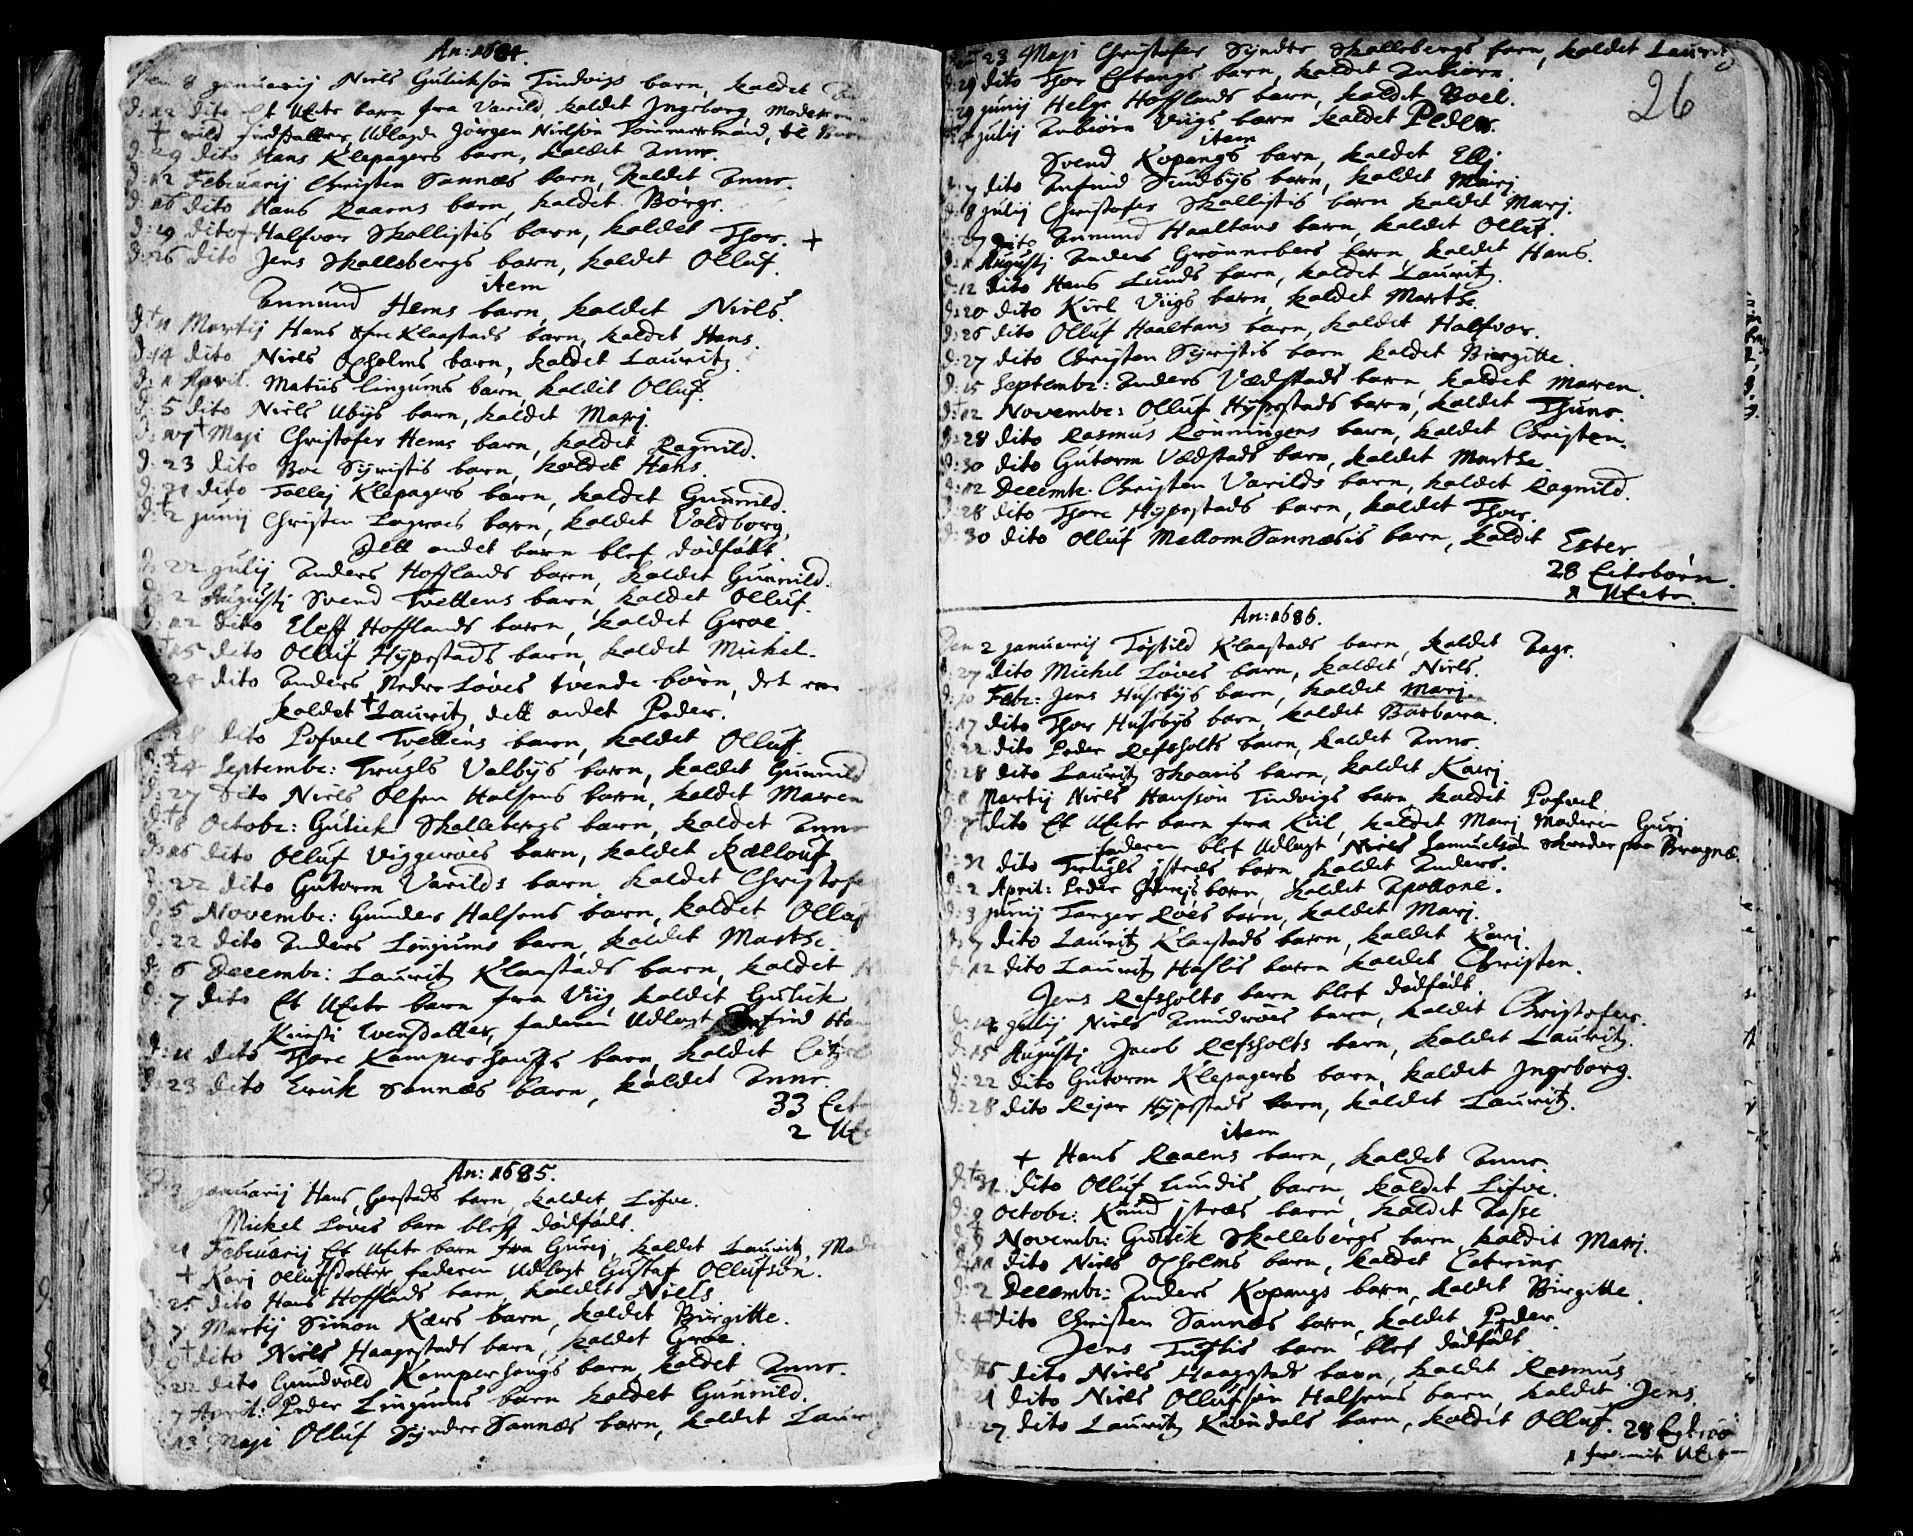 An: 1684.
Den 8 januarij Niels Gulichsøn Tindvigs barn, kaldet
d: 12 dito Et Uecte barn fra Varild, kaldet Ingeborg, Moderen
+ udlagde Jørgen Nielsøn Tømmermand, til Barn
d: 29 dito Hans Klepagers barn, kaldet Anne.
d: 12 Februarij Christen Sannæs barn, kaldet Anne.
d: 16 dito Hans Raaens barn, kaldet Børge.
d: 19 dito + Halfvor Skallistis barn, kaldet Thor. +
d: 26 dito Jens Skallebergs barn, kaldet Olluf.
item
Amund Hems barn, kaldet Niels.
d: 11 Martij Hans Klaastads barn, kaldet Hans.
d: 14 dito Niels Oxholms barn, kaldet Lauritz.
d: 11 April. Matiis Lingums barn, kaldet Olluf.
d: 5 dito Niels Ubÿs barn, kaldet Marj.
d: 17 + Maji Christofer Hems barn, kaldet Ragnild.
d: 23 dito Boe Syristis barn, kaldet Hans.
d: 21 dito Tollej Klepagers barn, kaldet Gunnild.
d: 2 junij Christen barn, kaldet Valdborg,
Dett andet barn blef dødfødt.
d: 22 julij Anders Hofflands barn, kaldet Gunnild.
d: 2 Augustj Svend Tvettens barn, kaldet Olluf.
d: 12 dito Eleff Hofflands barn, kaldet Groe.
+ 15 dito Olluf Hÿpestads barn, kaldet Michel.
24 dito Anders Nedre Løves tvende børn, det ene
kaldet + Lauritz, dett andet Peder.
28 dito Pofvel Tvettens barn, kaldet Olluf.
d: + 24 Septembr: Trugls Valbÿs barn, kaldet Gunnild
d: 27 dito Niels Olsen Halsens barn, kaldet Maren
d: + 8 Octobr: Gulich Skallebergs barn, kaldet Anne
d: 16 dito Olluf Viggeröes barn, kaldet Kællouf.
d: 22 dito Gutorm Varilds barn, kaldet Christofer
d: 5 Novembr: Gunder Halsens barn, kaldet Olluf
d: 22 dito Anders Lingums barn, kaldet Marthe.
d: 6 Decembr: Lauritz Klaastads barn, kaldet
d: 7 dito Et Uecte barn fra Viig, kaldet Gulich
Kirsti Svensdatter, faderen Udlagt
d: 11 dito Thore Kamperhaugs barn, kaldet
d: 23 dito Erich Sannæs barn, kaldet Anne.
33 Ecte
2 Uecte
An: 1685.
d: 3 januarij Hans Gerstads barn, kaldet Lifve.
Mickel Løves barn bleff dødfødt.
21 Februarij Et Uecte barn fra Gurej, kaldet Lauritz, Mode
+ Karj Ollufsdatter faderen Udlagt Gustaf Ollufsøn.
d: 25 dito Hans Hofflads barn, kaldet Niels
d: 7 Martij Simon Kærs barn, kaldet Birgitte.
+ dito Niels Haagestads barn, kaldet Groe.
22 dito Gundvold Kamperhaugs barn, kaldet Anne.
d: 7 April: Peder Lingums barn kaldet Gunnild.
d: 13 Maji Olluf Syndre Sannæs barn, kaldet Laur
26
23 Maji Christofer Syndre Skallebergs barn, kaldet Lauritz
d: 29 dito Thor Estangs barn, kaldet Anbiørn.
d: 29 junij Helge Hofflands barn, kaldet Boel.
d: 4 julij Anbiørn Viigs barn kaldet Peder.
item
Svend Kopangs barn, kaldet Ellj
d: 7 dito Anfind Sundbÿs barn, kaldet Marj
d: 8 julij Christofer Skallistis barn kaldet Marj.
d: 27 dito Amund Haaltans barn, kaldet Olluf.
d: 11 Augustj Anders Grønnebers barn, kaldet Hans.
d: 12 dito Hans Lunds barn, kaldet Lauritz
d: 20 dito Kiel Viigs barn, kaldet Marthe.
d: 26 dito Olluf Haaltans barn, kaldet Halfvor.
d: 27 dito Christen Syristis barn, kaldet Birgitte.
d: 15 Septembr: Anders Vædstads barn, kaldet Maren.
d: + 12 Novembr: Olluf Hÿpestads barn, kaldet Thure.
d: 28 dito Rasmus Rönningens barn, kaldet Christen.
d: 30 dito Gutorm Vædstads barn, kaldet Marthe.
d: 12 Decembr. Christen Varilds barn, kaldet Ragnild.
d: 28 dito Thore Hÿpestads barn, kaldet Thor.
d: 30 dito Olluf Mellom Sannæsis barn, kaldet Ester.
28 Ectebørn.
1 Uecte.
An: 1686.
Den 2 januarij Tostild Klaastads barn, kaldet Aage.
d: 27 dito Michel Løves barn, kaldet Niels.
d: 10 Febr: Jens Husebÿs barn, kaldet Marj.
d: 17 dito Thor Husebÿs barn, kaldet Barbara.
d: 22 dito Peder Refsholts barn, kaldet Anne.
d: 28 dito Lauritz Skaaris barn, kaldet Karj
d: 11 Martij Niels Hanssøn Tindvigs barn, kaldet Pofvel
d: 7 + dito Et Uecte barn fra Kiil, kaldet Marj Moderen Gurj
faderen blef Udlagt Niels Samuelsøn Skreder fra Bragnæ.
d: 31 dito Truigls jstræs barn, kaldet Anders.
d: 2 April: Peder Gurejs barn, kaldet Apollone.
d: 3 junij Torger Röes barn, kaldet Marj.
d: 7 dito Lauritz Klaastads barn, kaldet Karj
d: 12 dito Lauritz Haslis barn kaldet Christen.
Jens Refsholts barn blef dødfødt.
d: 14 julij Niels Amundröes barn, kaldet Christofer.
d: 15 Augustj Jacob Refsholts barn, kaldet Lauritz.
d: 22 dito Gutorm Klepagers barn, kaldet Ingeborg.
d: 28 dito Rejer Hÿpestads barn, kaldet Lauritz.
item
+ Hans Raaens barn, kaldet Anne.
d: + 31 dito Olluf Lundis barn, kaldet Lifve.
d: 9 Octobr: Knud jstræs barn, kaldet Aasse
d: 7 Novembr: Gulich Skallebergs barn, kaldet Marj.
d: 11 dito Niels Oxholms barn, kaldet Catrine
d: 2 Decembr: Anders Kopangs barn, kaldet Birgitte.
d: 4 + dito Christen Sannæs barn, kaldet Peder.
Jens Tuftis barn blef dødfødt.
d: + 16 dito Niels Haagestads barn, kaldet Rasmus
d: 21 dito Niels Ollufsøn Halsens barn, kaldet Jens.
d: 27 dito Lauritz Kvindals barn, kaldet Olluf.
28
1 Uecte